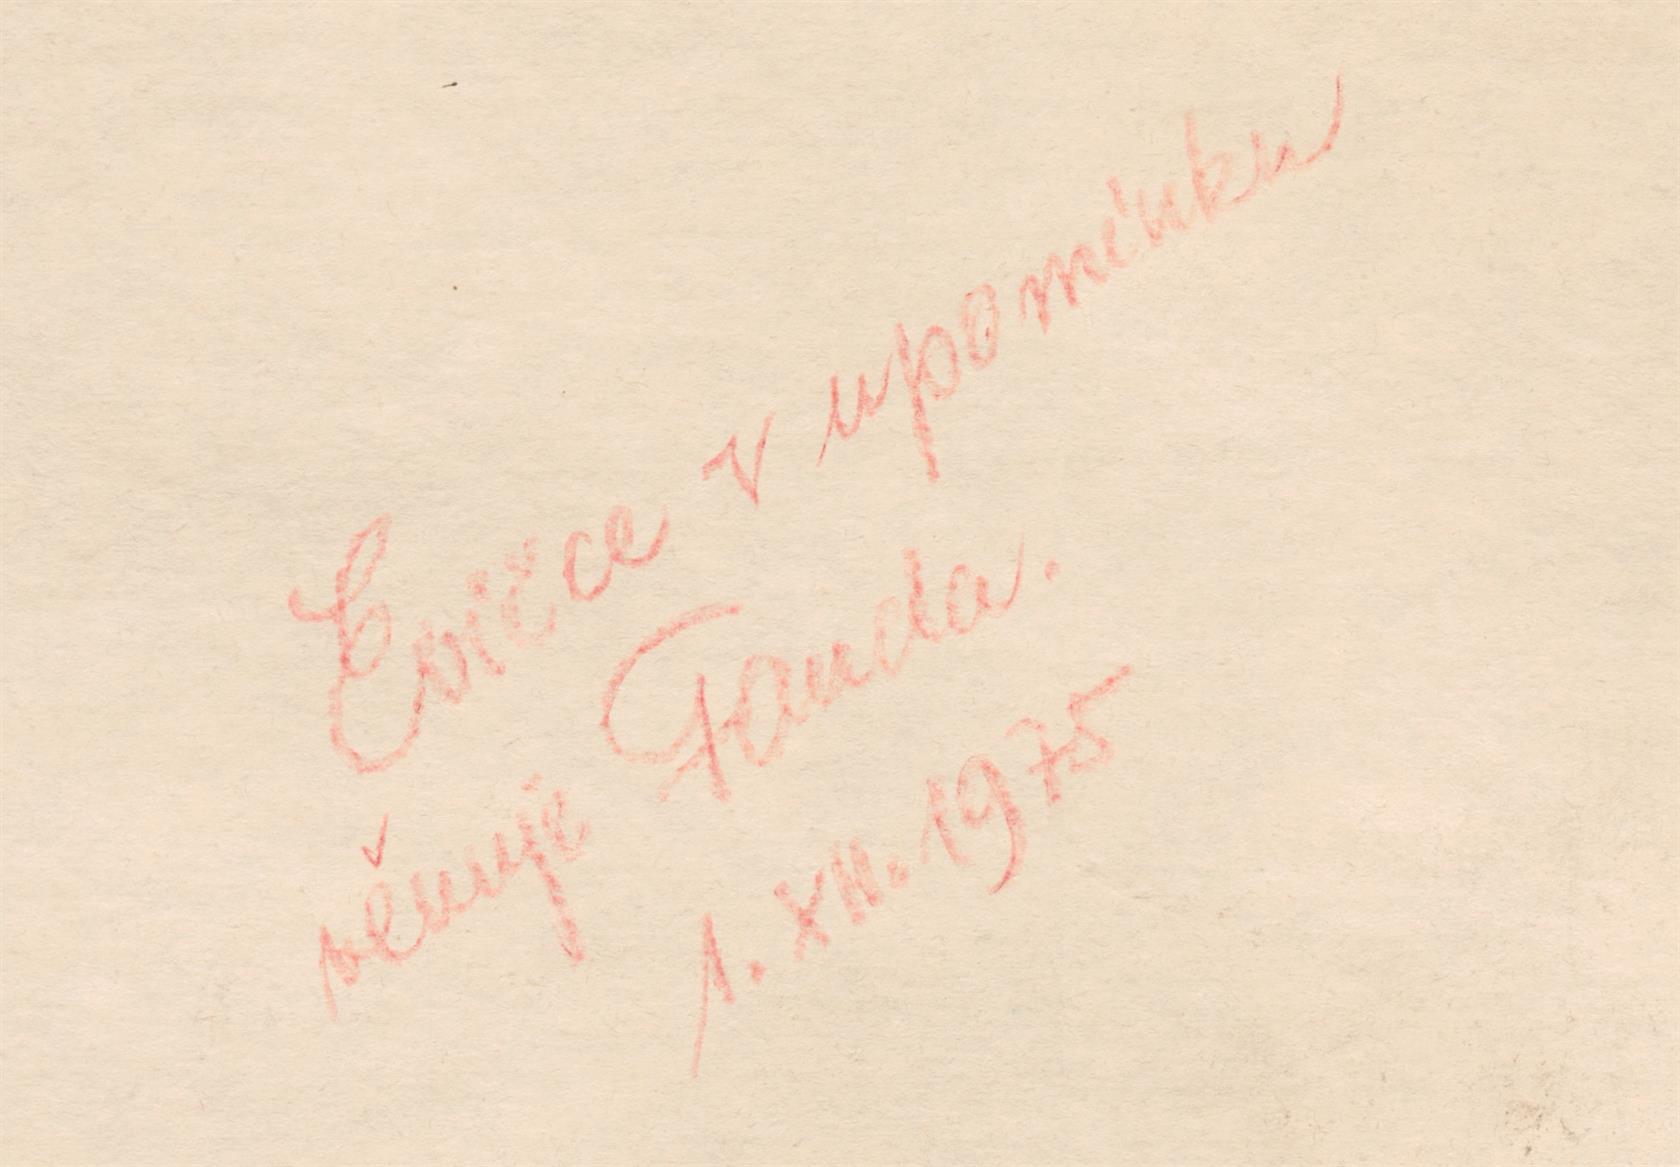 Evičce v upomínku
věnuje Fanda.
1. XII. 1975